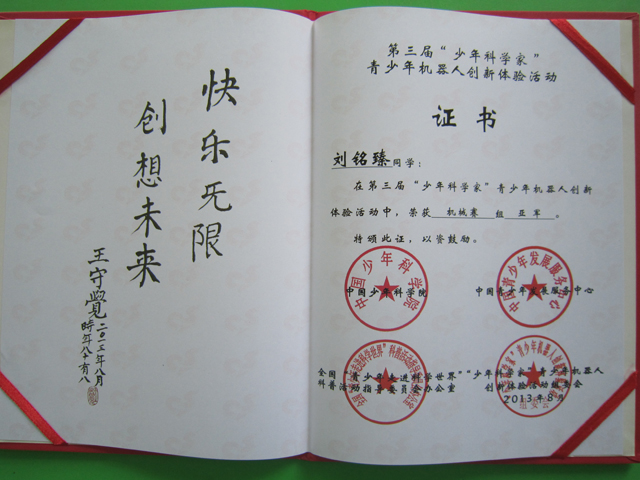 快乐无限
创想未来
王守觉 二〇一三年八月
时年八十有八
第三届“少年科学家”
青少年机器人创新体验活动
证书
刘铭臻同学：
在第三届“少年科学家”青少年机器人创新
体验活动中，荣获 机械赛 组 亚军 。
特颁此证，以资鼓励。
中国少年科学院
中国少年科学院
中国青少年发展服务中心
中国青少年发展服务中心
全国“青少年走进科学世界”
科普活动指导委员会办公室
“少年科学家”青少年机器人
创新体验活动组委会
组委会
2013年8月